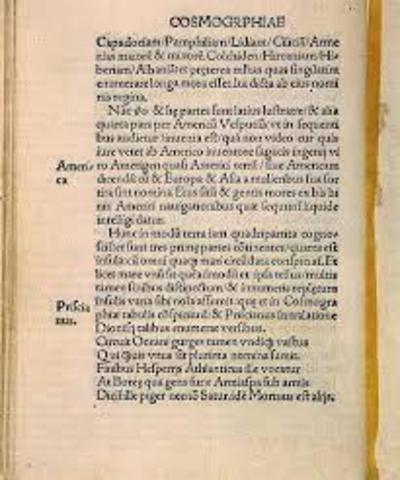 COSMOGRPHIAE
Capadociam/Pamphiliam/Lidiam/Ciliciā/Arme
nias maiorē & minorē. Colchiden/Hircaniam/Hi-
beriam/Albaniā: et preterea multas quas singilatim
enumerare longa mora esset. Ita dicta ab eius nomi
nis regina.
Nūc & hę partes sunt latius lustratæ/& alia
quarta pars per Americū Vesputiū(vt in sequenti
bus audietur)inuenta est/quā non video cur quis
iure vetet ab Americo inuentore sagacis ingenij vi
Ameri-
ca
ro Amerigen quasi Americi terrā/siue Americam
dicendā: cū & Europa & Asia a mulieribus sua sor
tita sint nomina. Eius sitū & gentis mores ex bis bi
nis Americi nauigationibus quæ sequunt liquide
intelligi datur.
Hunc in modū terra iam quadripartita cognos-
citur: et sunt tres primę partes cōtinentes/quarta est
insula: cū omni quāq mari circūdata conspiciat. Et
licet mare vnū sit quēadmodū et ipsa tellus/multis
tamen sinibus distinctum/& innumeris repletum
Priscia
nus.
insulis varia sibi noīa assumit: quę et in Cosmogra
phiæ tabulis cōspiciunt/& Priscianus in tralatione
Dionisij talibus enumerat versibus.
Circuit Oceani gurges tamen vndiq vastus
Qui quis vnus sit plurima nomina sumit.
Finibus Hesperijs Athlanticus ille vocatur
At Boreę qua gens furit Armiaspa sub armis
Dicitille piger necnō Satur. idē Mortuus est alijs;